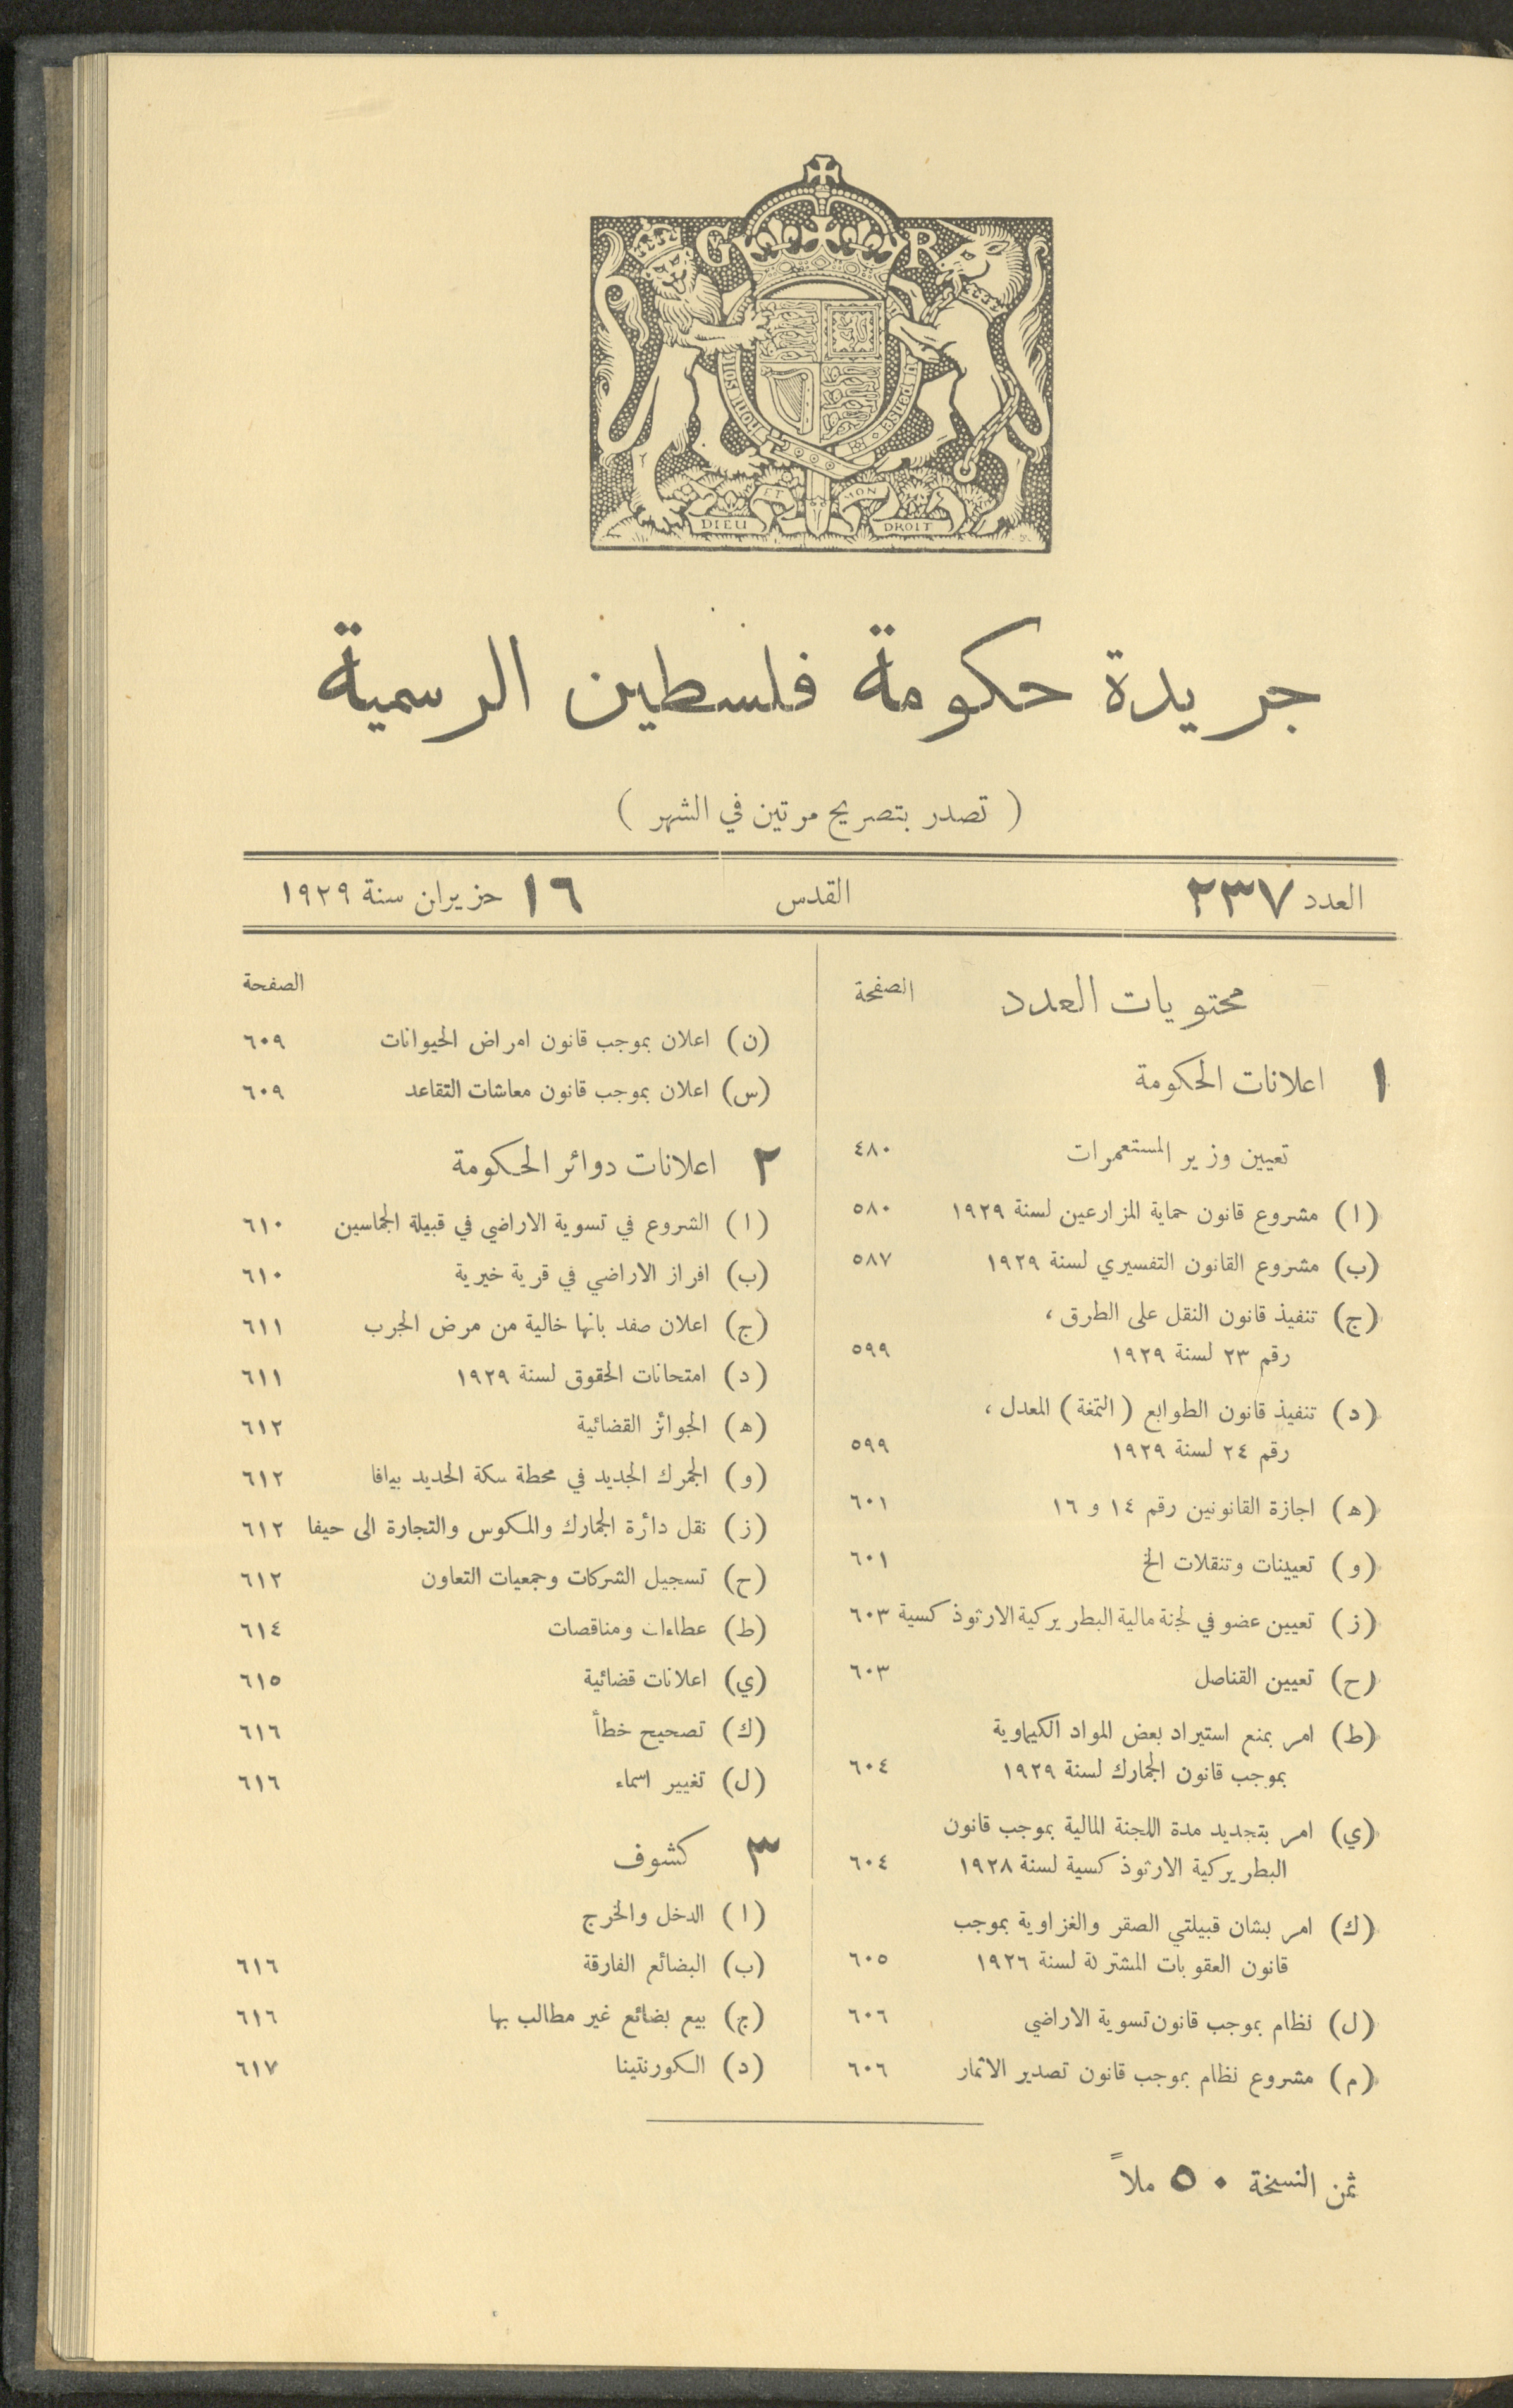 G R
HONI SOIT
Y PENSE
DIEU ET MON DROIT
جريدة حكومة فلسطين الرسمية
( تصدر بتصريح مرتين في الشهر )
العدد ٢٣٧ القدس ١٦ حزيران سنة ١٩٢٩
محتويات العدد الصفحة
١ اعلانات الحكومة
تعيين وزير المستعمرات ٤٨٠
(ا) مشروع قانون حماية المزارعين لسنة ١٩٢٩ ٥٨٠
(ب) مشروع القانون التفسيري لسنة ١٩٢٩ ٥٨٧
(ج) تنفيذ قانون النقل على الطرق ،
رقم ٢٣ لسنة ١٩٢٩ ٥٩٩
(د) تنفيذ قانون الطوابع (التمغة) المعدل ،
رقم ٢٤ لسنة ١٩٢٩ ٥٩٩
(ه) اجازة القانونين رقم ١٤ و ١٦ ٦٠١
(و) تعيينات وتنقلات الخ ٦٠١
(ز) تعيين عضو في لجنة مالية البطريركية الارثوذكسية ٦٠٣
(ح) تعيين القناصل ٦٠٣
(ط) امر بمنع استيراد بعض المواد الكيماوية
بموجب قانون الجمارك لسنة ١٩٢٩ ٦٠٤
(ي) امر بتجديد مدة اللجنة المالية بموجب قانون
البطريركية الارثوذكسية لسنة ١٩٢٨ ٦٠٤
(ك) امر بشان قبيلتي الصقر والغزاوية بموجب
قانون العقوبات المشتركة لسنة ١٩٢٦ ٦٠٥
(ل) نظام بموجب قانون تسوية الاراضي ٦٠٦
(م) مشروع نظام بموجب قانون تصدير الاثمار ٦٠٦
الصفحة
(ن) اعلان بموجب قانون امراض الحيوانات ٦٠٩
(س) اعلان بموجب قانون معاشات التقاعد ٦٠٩
٢ اعلانات دوائر الحكومة
(ا) الشروع في تسوية الاراضي في قبيلة الجماسين ٦١٠
(ب) افراز الاراضي في قرية خيرية ٦١٠
(ج) اعلان صفد بانها خالية من مرض الجرب ٦١١
(د) امتحانات الحقوق لسنة ١٩٢٩ ٦١١
(ه) الجوائز القضائية ٦١٢
(و) الجمرك الجديد في محطة سكة الحديد بيافا ٦١٢
(ز) نقل دائرة الجمارك والمكوس والتجارة الى حيفا ٦١٢
(ح) تسجيل الشركات وجمعيات التعاون ٦١٢
(ط) عطاءات ومناقصات ٦١٤
(ي) اعلانات قضائية ٦١٥
(ك) تصحيح خطأ ٦١٦
(ل) تغيير اسماء ٦١٦
٣ كشوف
(ا) الدخل والخرج
(ب) البضائع الفارقة ٦١٦
(ج) بيع بضائع غير مطالب بها ٦١٦
(د) الكورنتينا ٦١٧
ثمن النسخة ٥٠ ملاً